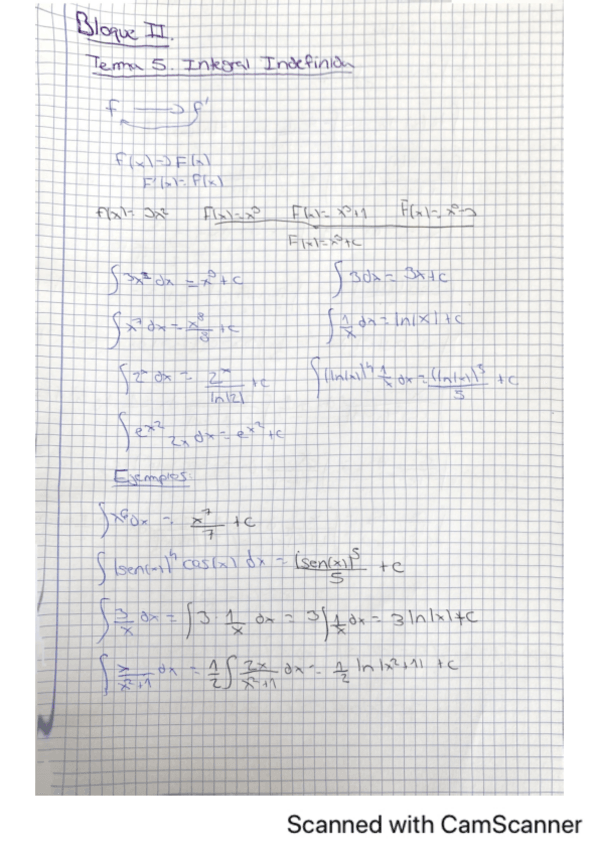 Bloque II.
Tema 5. Integral Indefinida
f → f'
f(x) → F(x)
F'(x) = f(x)
f(x) = 3x² F(x) = x³ F(x) = x³+1 F(x) = x³-
F(x) = x³+c
∫3x² dx = x³+c ∫3dx = 3x+c
∫x⁷ dx = x⁸/8 + c ∫1/x dx = ln|x|+c
∫2ˣ dx = 2ˣ/ln|2| + c ∫(ln(x))⁴ 1/x dx = (ln(x))⁵/5 + c
∫eˣ² 2x dx = eˣ²+c
Ejemplos:
∫x⁶dx = x⁷/7 + c
∫(sen(x))⁴ cos(x) dx = (sen(x))⁵/5 + c
∫3/x dx = ∫3·1/x dx = 3∫1/x dx = 3 ln|x|+c
∫x/x²+1 dx = 1/2∫2x/x²+1 dx = 1/2 ln|x²+1| + c
Scanned with CamScanner